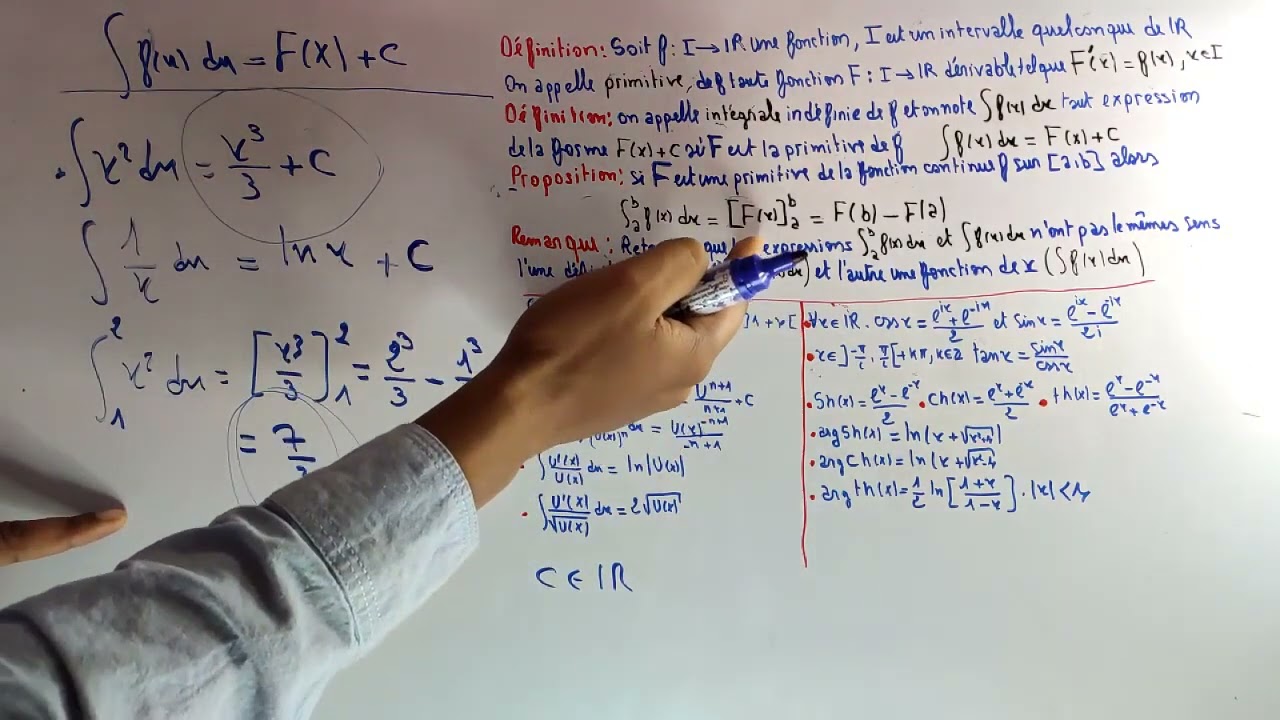 ∫f(x) dx = F(x) + C
∫x² dx = x³/3 + C
∫1/x dx = ln x + C
∫₁² x² dx = [x³/3]₁² = 2³/3 - 1³
= 7/
Définition: Soit f: I → IR une fonction, I est un intervalle quelconque de IR
On appelle primitive, de f toute fonction F: I → IR dérivable tel que F'(x) = f(x), x∈I
Définition: on appelle intégrale indéfinie de f et on note ∫f(x) dx tout expression
de la forme F(x)+C si F est la primitive de f ∫f(x) dx = F(x)+C
Proposition: si F est une primitive de la fonction continue f sur [a;b] alors
∫ₐᵇ f(x) dx = [F(x)]ₐᵇ = F(b) - F(a)
Remarque: que expressions ∫ₐᵇ f(x)dx et ∫f(x)dx n'ont pas le mêmes sens
l'une dx) et l'autre une fonction de x (∫f(x)dx)
]1+x[
Uⁿ⁺¹/n+1 + C
dx = U(x)⁻ⁿ⁺¹/-n+1
• ∫U'(x)/U(x) dx = ln|U(x)|
• ∫U'(x)/√U(x) dx = 2√U(x)
C ∈ IR
• ∀x∈IR. cos x = eⁱˣ+e⁻ⁱˣ/2 et sin x = eⁱˣ-e⁻ⁱˣ/2i
• x∈]-π/2, π/2[+kπ, k∈Z tan x = sin x/cos x
• Sh(x) = eˣ-e⁻ˣ/2 • Ch(x) = eˣ+eˣ/2 • th(x) = eˣ-e⁻ˣ/eˣ+e⁻ˣ
• argSh(x) = ln(x+√x²+1)
• argCh(x) = ln(x+√x²-1
• argth(x) = 1/2 ln[1+x/1-x]. |x|<1